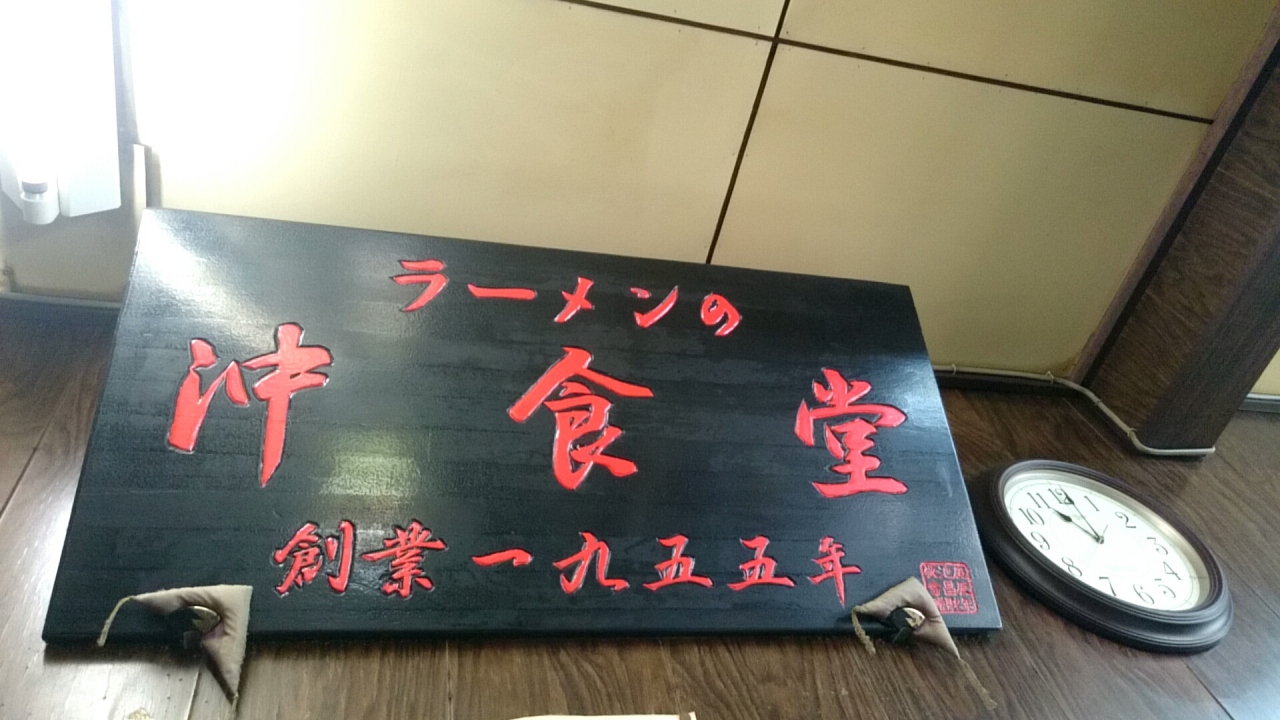 ラーメンの
沖食堂
創業一九五五年
11 12 2
10
9 3
8 4
7 6 5